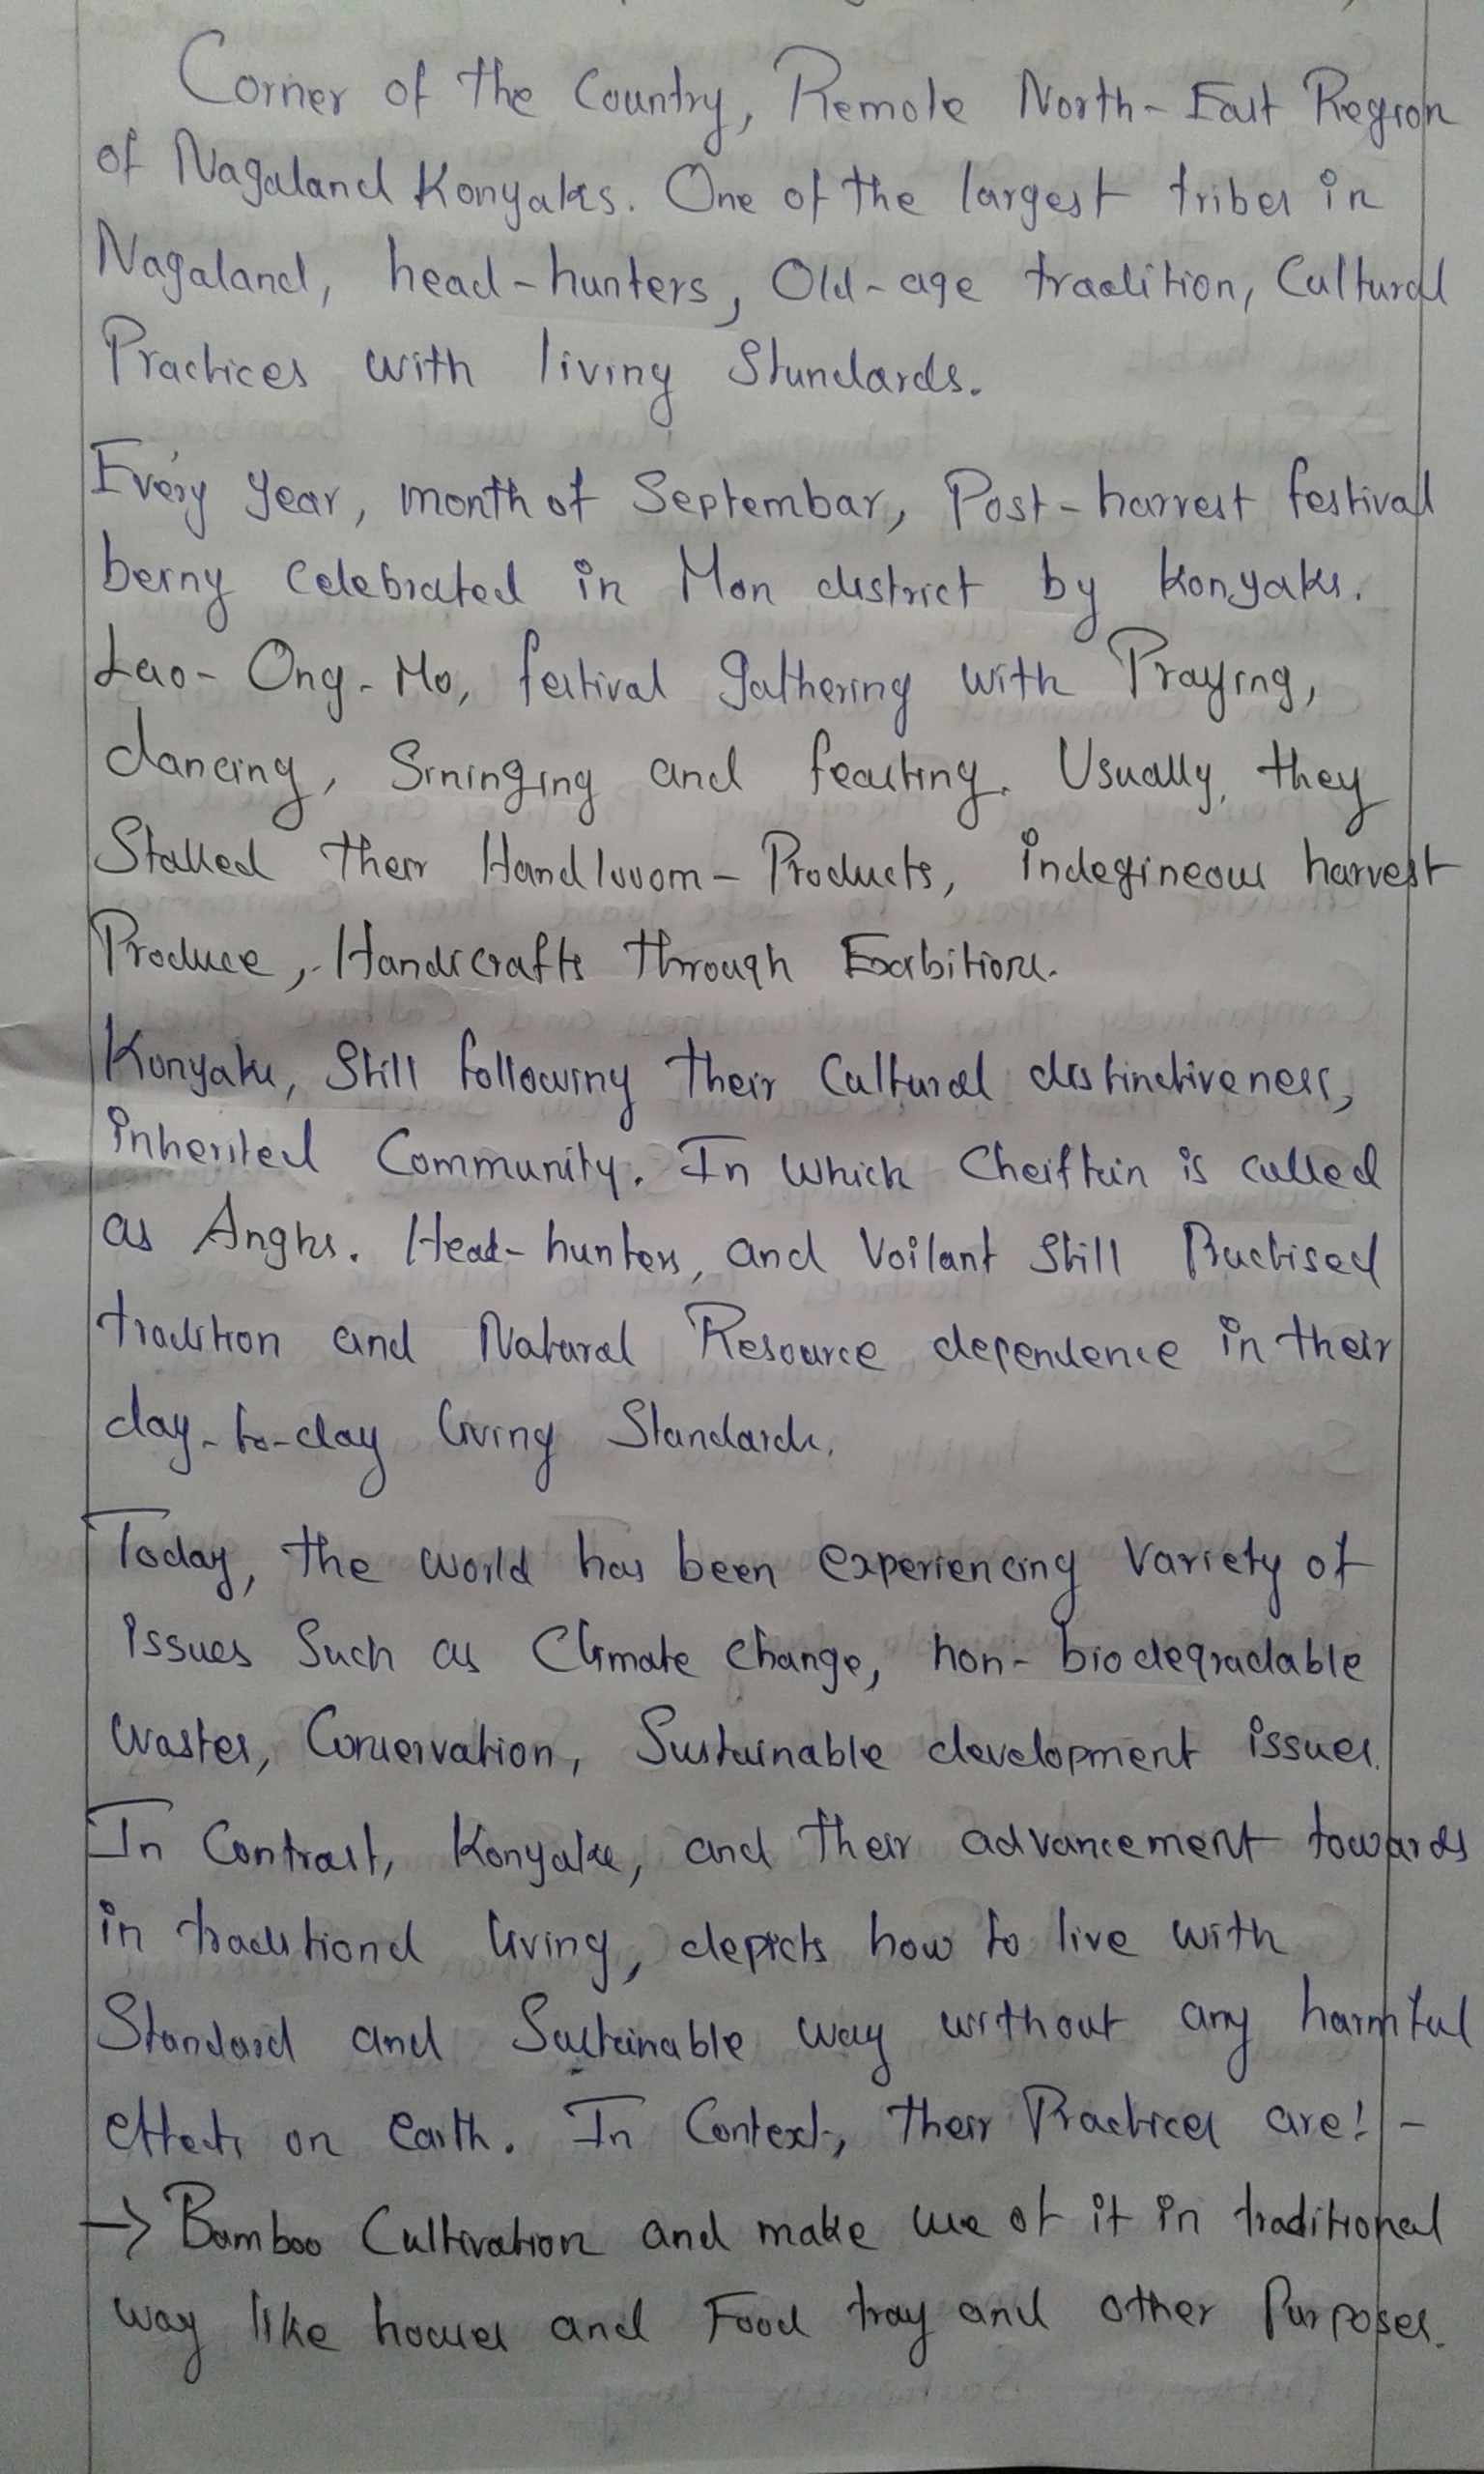 Corner of the Country, Remote North-East Region
of Nagaland Konyaks. One of the largest tribes in
Nagaland, head-hunters, Old-age tradition, Cultural
Practices with living Standards.
Every Year, month of Septembar, Post-harvest festival
being Celebrated in Mon district by Konyaks.
Lao-Ong-Mo, festival gathering with Praying,
dancing, Sininging and feasting. Usually, they
Stalled their Handlooom-Products, indegineous harvest
Produce, Handicrafts through Exabitions.
Konyaks, Still following their Cultural distinctiveness,
inherited Community. In which Cheiftain is called
as Anghs. Head-hunters, and Voilant Still Practised
tradition and Natural Resource dependence in their
day-to-day living Standards.
Today, the world has been experiencing Variety of
issues Such as Climate change, non-biodegradable
Wastes, Conservation, Sustainable development issues.
In Contrast, Konyaks, and their advancement towards
in traditional living, depicts how to live with
Standard and Sustainable way without any harmful
effects on Earth. In Context, their Practices are:-
→ Bamboo Cultivation and make use of it in traditional
way like houses and Food tray and other Purposes.